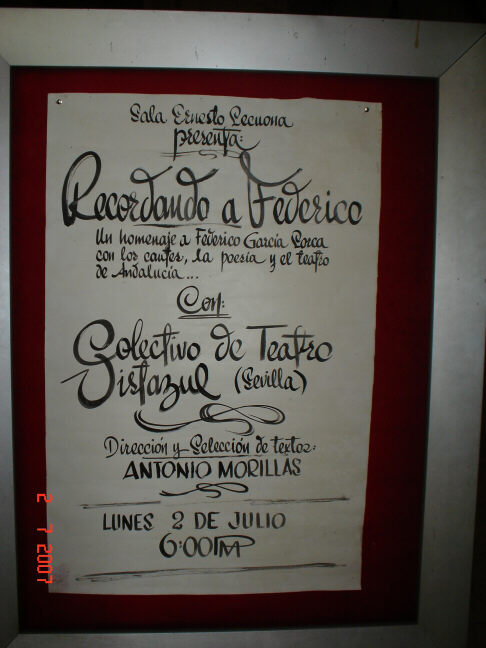 Sala Ernesto Lecuona
presenta:
Recordando a Federico
Un homenaje a Federico García Lorca
con los cantes, la poesía y el teatro
de Andalucía...
Con:
Colectivo de Teatro
Vistazul (Sevilla)
Dirección y Selección de textos:
ANTONIO MORILLAS
LUNES 2 DE JULIO
6:00 PM
2 7 2007